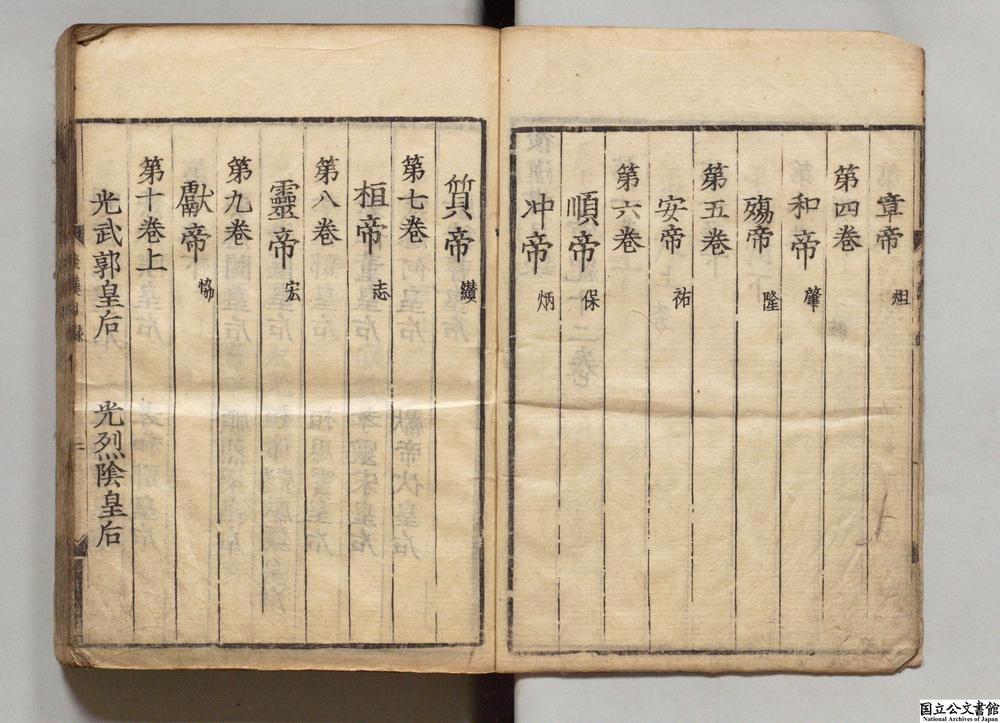 章帝 炟
第四卷
和帝 肇
殤帝 隆
第五卷
安帝 祐
第六卷
順帝 保
冲帝 炳
質帝 纉
第七卷
桓帝 志
第八卷
靈帝 宏
第九卷
獻帝 恊
第十卷上
光武郭皇后 光烈陰皇后
国立公文書館
National Archives of Japan